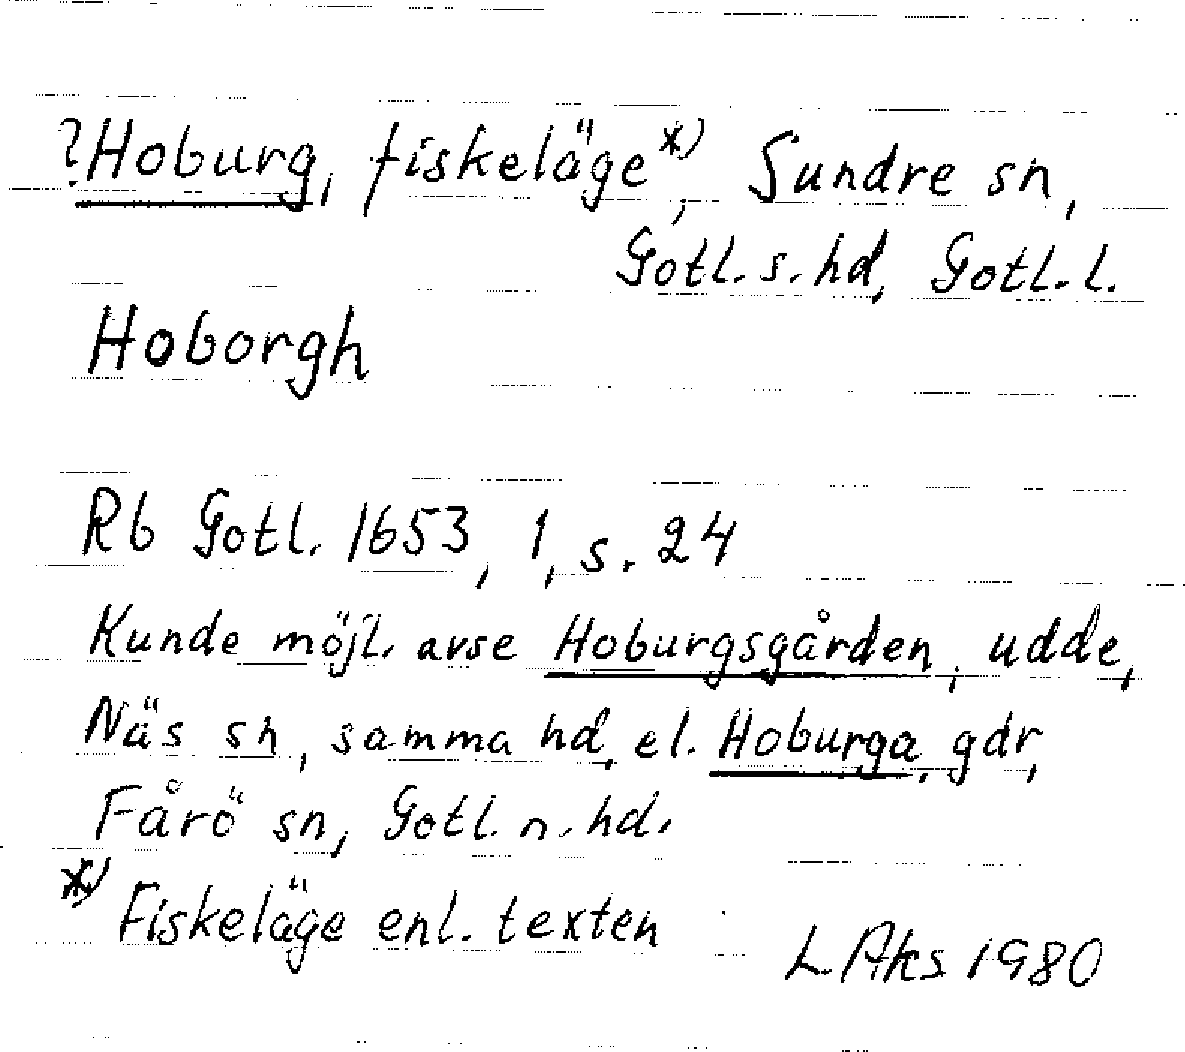 ?Hoburg, fiskeläge*), Sundre sn,
Gotl. s. hd, Gotl. l.
Hoborgh
Rb Gotl. 1653, 1, s. 24
Kunde möjl. avse Hoburgsgården, udde,
Näs sn, samma hd, el. Hoburga, gdr,
Fårö sn, Gotl. n. hd.
*) Fiskeläge enl. texten
L Aks 1980